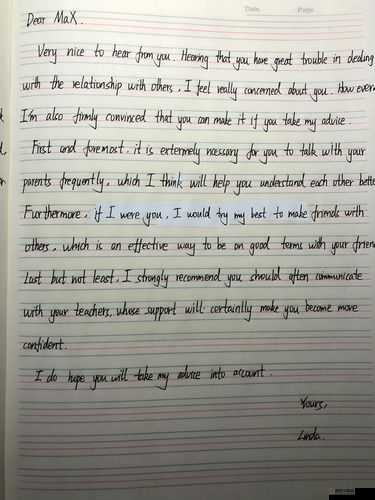 Date. Page.
Dear Max.
Very nice to hear from you. Hearing that you have great trouble in dealing
with the relationship with others, I feel really concerned about you. Howeve
I'm also firmly convinced that you can make it if you take my advice.
First and foremost, it is extermely nacssary for you to talk with your
parents frequently, which I think will help you understand each other bette
Furthermore, if I were you, I would try my best to make friends with
others, which is an effective way to be on good terms with your frien
Last but not least, I strongly recommend you should often communicate
with your teachers, whose support will certainlly make you become more
confident.
I do hope you will take my advice into account.
Yours,
Linda.